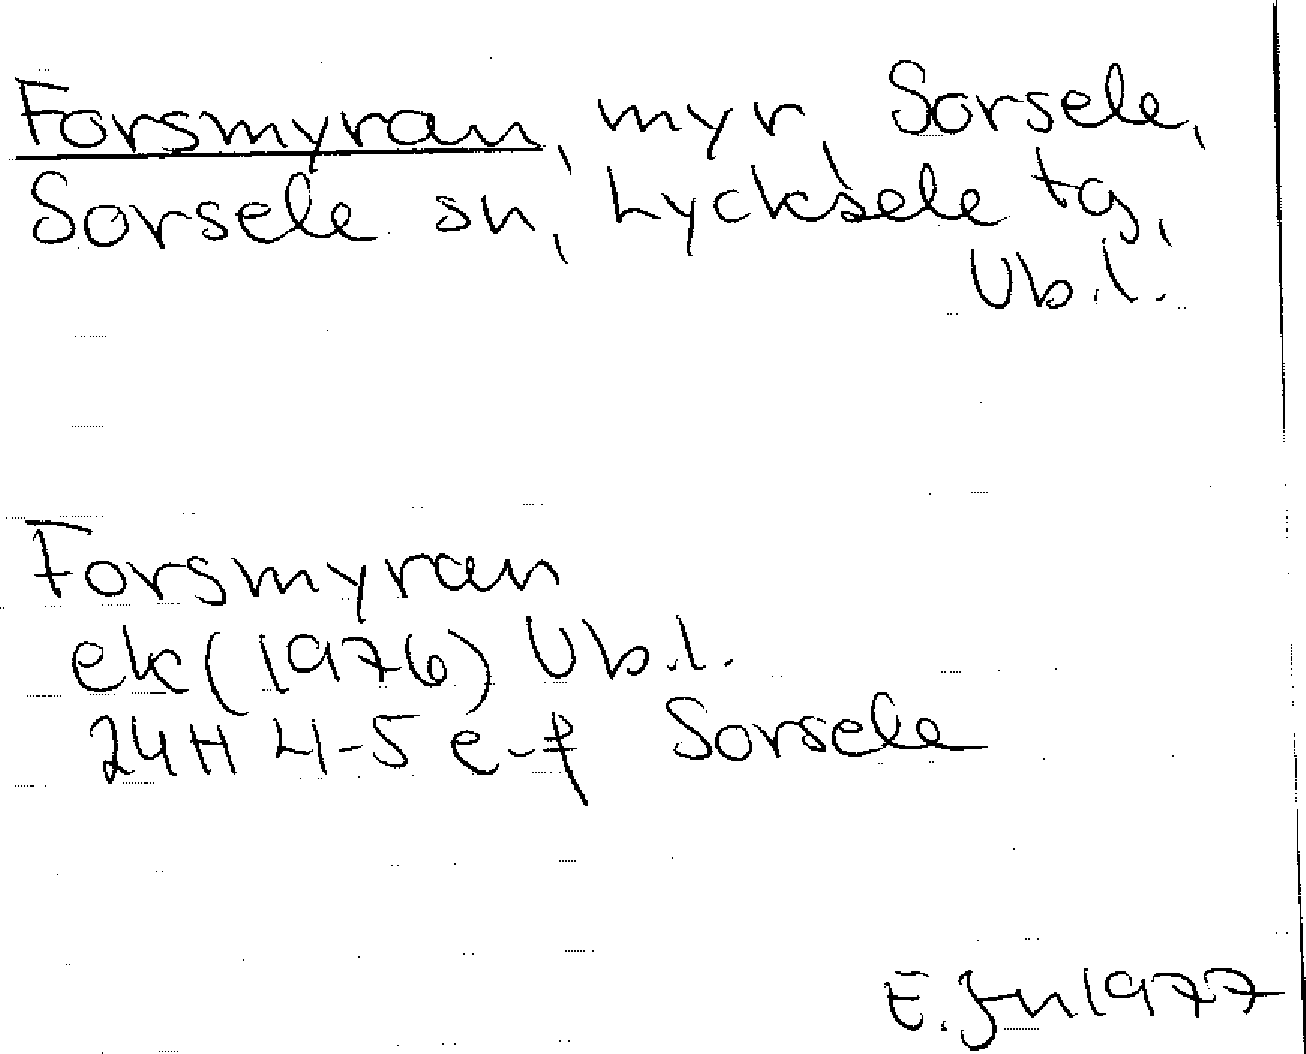 Forsmyran, myr, Sorsele,
Sorsele sn, Lycksele tg,
Vb.l.
Forsmyran
ek (1976) Vb.l.
24H 4-5 e-f Sorsele
E. Jn 1977